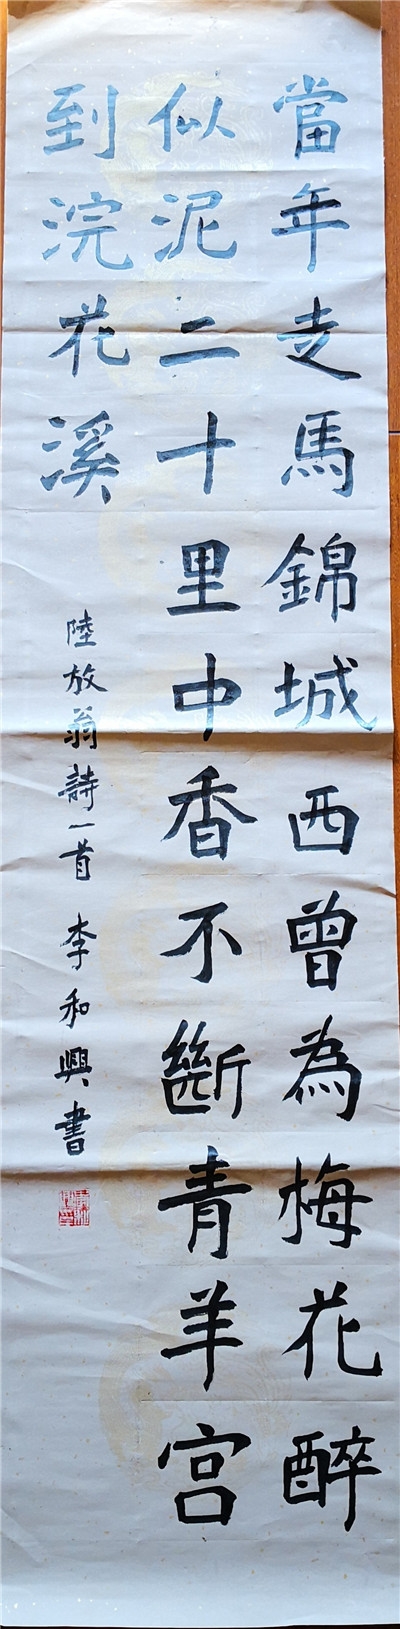 當年走馬錦城西曾為梅花醉
似泥二十里中香不斷青羊宮
到浣花溪
陸放翁詩一首 李和興書